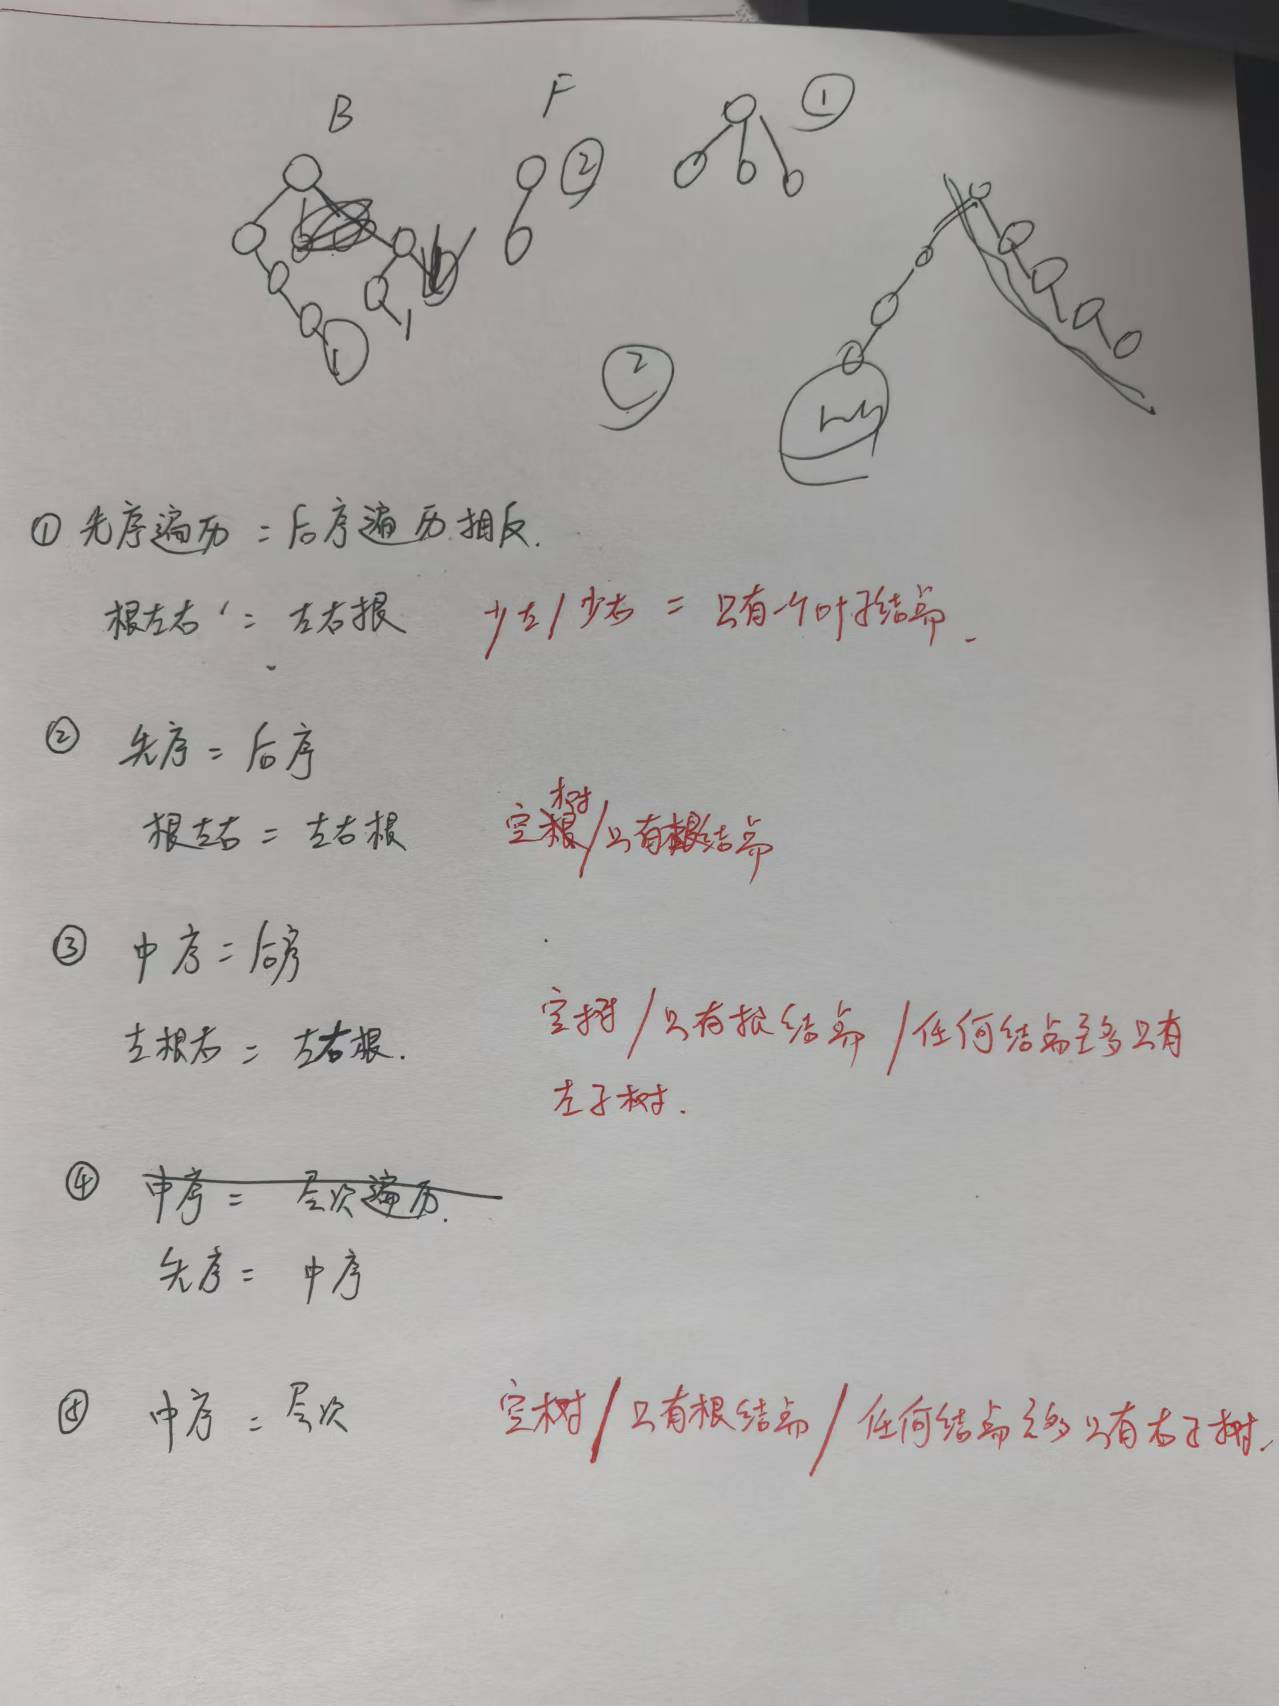 B F ①
②
②
① 先序遍历 = 后序遍历 相反.
根左右 = 左右根 少左/少右 = 只有一个叶子结点.
② 先序 = 后序
树
根左右 = 左右根 空根/只有根结点
③ 中序 = 后序
左根右 = 左右根. 空树/只有根结点/任何结点至多只有
左子树.
④ 中序 = 层次遍历.
先序 = 中序
⑤ 中序 = 层次 空树/只有根结点/任何结点至多只有右子树.